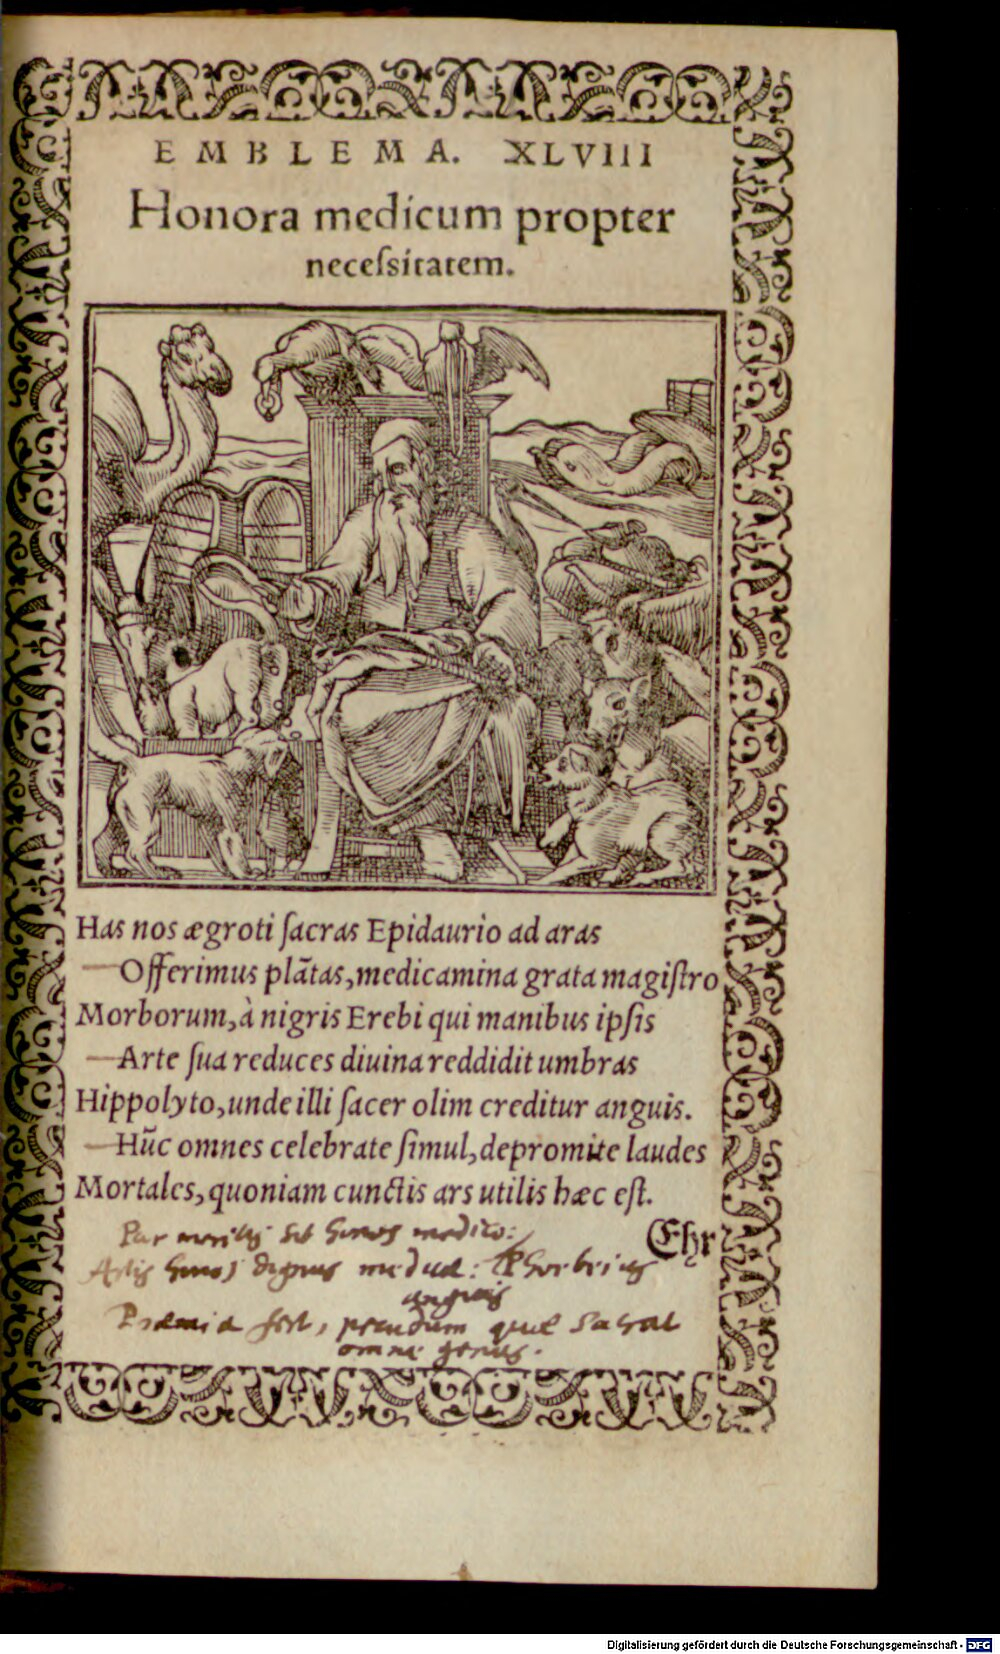 EMBLEMA. XLVIII
Honora medicum propter
neceſsitatem.
Has nos ægroti ſacras Epidaurio ad aras
Offerimus plãtas, medicamina grata magiſtro
Morborum, à nigris Erebi qui manibus ipſis
Arte ſua reduces diuina reddidit umbras
Hippolyto, unde illi ſacer olim creditur anguis.
Hũc omnes celebrate ſimul, depromite laudes
Mortales, quoniam cunctis ars utilis hæc eſt.
Ehr
Par sit honos medico:
honos dignus
anguis
Præmia fert, quæ
omne genus.
Digitalisierung gefördert durch die Deutsche Forschungsgemeinschaft - DFG